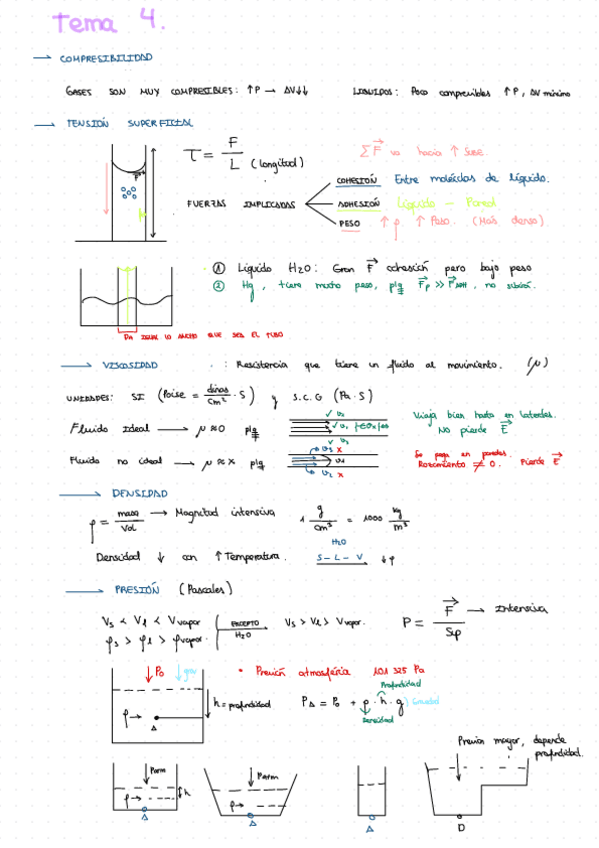 Tema 4.
→ COMPRESIBILIDAD
GASES SON MUY COMPRESIBLES: ↑P → ΔV↓↓ LIQUIDOS: Poco compresibles ↑P, ΔV mínimo
→ TENSIÓN SUPERFICIAL
τ = F / L (longitud) ΣF va hacia ↑ SUBE.
FUERZAS IMPLICADAS
COHESIÓN Entre moléculas de líquido.
ADHESIÓN Líquido - Pared
PESO ↑ρ ↑Peso. (Más denso)
① Líquido H2O: Gran F adhesión pero bajo peso
② Hg, tiene mucho peso, Fp >> FADH, no subirá.
DA IGUAL LO ANCHO QUE SEA EL TUBO
→ VISCOSIDAD : Resistencia que tiene un fluido al movimiento. (μ)
UNIDADES: SI (Poise = dinas/cm² · S) y S.C.G (Pa · S)
Fluido Ideal → μ≈0
Viaja bien hasta en laterales.
No pierde E
Fluido no ideal → μ≈x
Se pega en paredes.
Rozamiento ≠ 0. Pierde E
→ DENSIDAD
ρ = masa/Vol → Magnitud intensiva 1 g/cm³ = 1000 kg/m³
Densidad ↓ con ↑Temperatura. H2O S-L-V ↓ρ
→ PRESIÓN (Pascales)
Vs < Vl < Vvapor EXCEPTO H2O Vs > Vl > Vvapor. P = F / Sup → Intensiva
ρs > ρl > ρvapor.
P0 gas • Presión atmosférica 101 325 Pa
h = profundidad PA = P0 + ρ · h · g Gravedad
Profundidad
densidad
ρ→ A
Presión mayor, depende profundidad.
Patm h Patm
ρ→ ρ→
A A A D